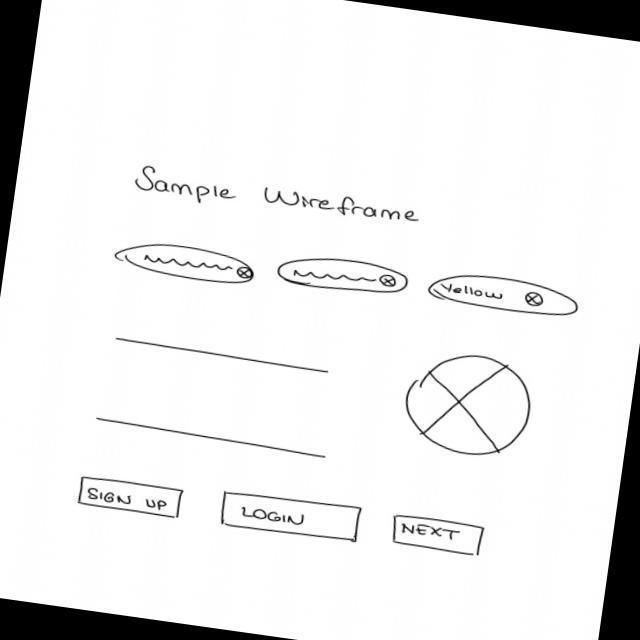 Sample Wireframe
Yellow
SIGN UP LOGIN NEXT